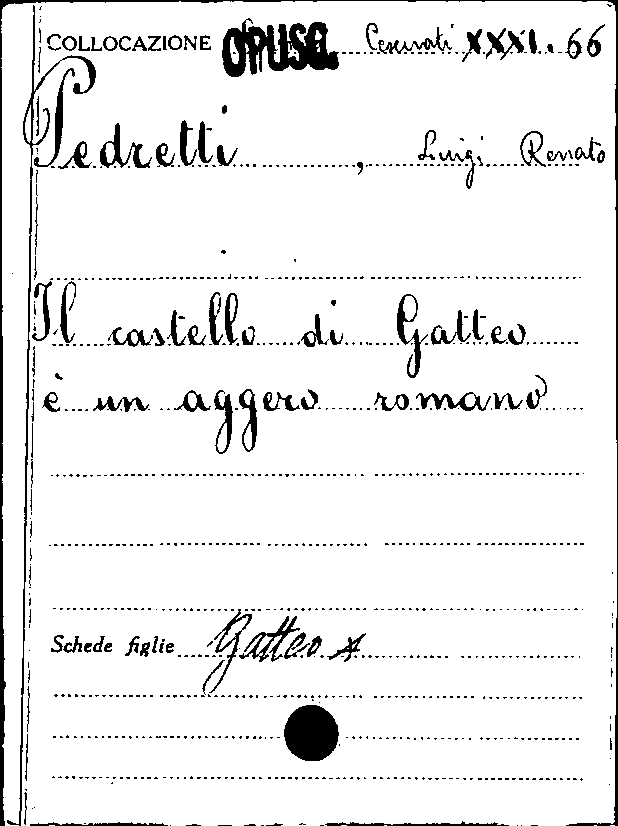 COLLOCAZIONE OPUSC. Cesenati XXXI. 66
Pedretti, Luigi Renato
Il castello di Gatteo
è un aggero romano
Schede figlie Gatteo